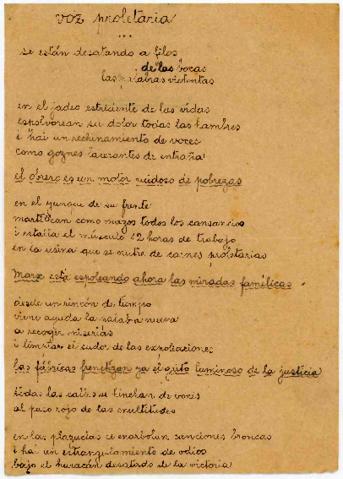 voz proletaria
...
se están desatando a filos
de las bocas
las palabras violentas
en el jadeo estridente de las vidas
espolvorean su dolor todas las hambres
i hai un rechinamiento de voces
como goznes lacerantes de entraña
el obrero es un motor ruidoso de pobrezas
en el yunque de su frente
martillean como mazos todos los cansancios
i estalla el músculo 12 horas de trabajo
en la usina que se nutre de carnes proletarias
Marx está espoleando ahora las miradas famélicas
desde un rincón de tiempo
viene aguda la palabra nueva
a recoger miserias
i limpiar el sudor de las explotaciones
las fábricas frenetizan ya el grito luminoso de la justicia
todas las calles se hinchan de voces
al paso rojo de las multitudes
en las plazuelas se enarbolan canciones broncas
i hai un estrangulamiento de odios
bajo el huracán desatado de la victoria